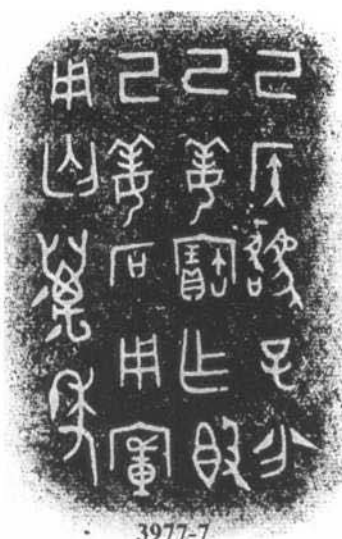 己侯貉子分
己姜寶乍𣪘
己姜石用
用匄萬年
3977-7